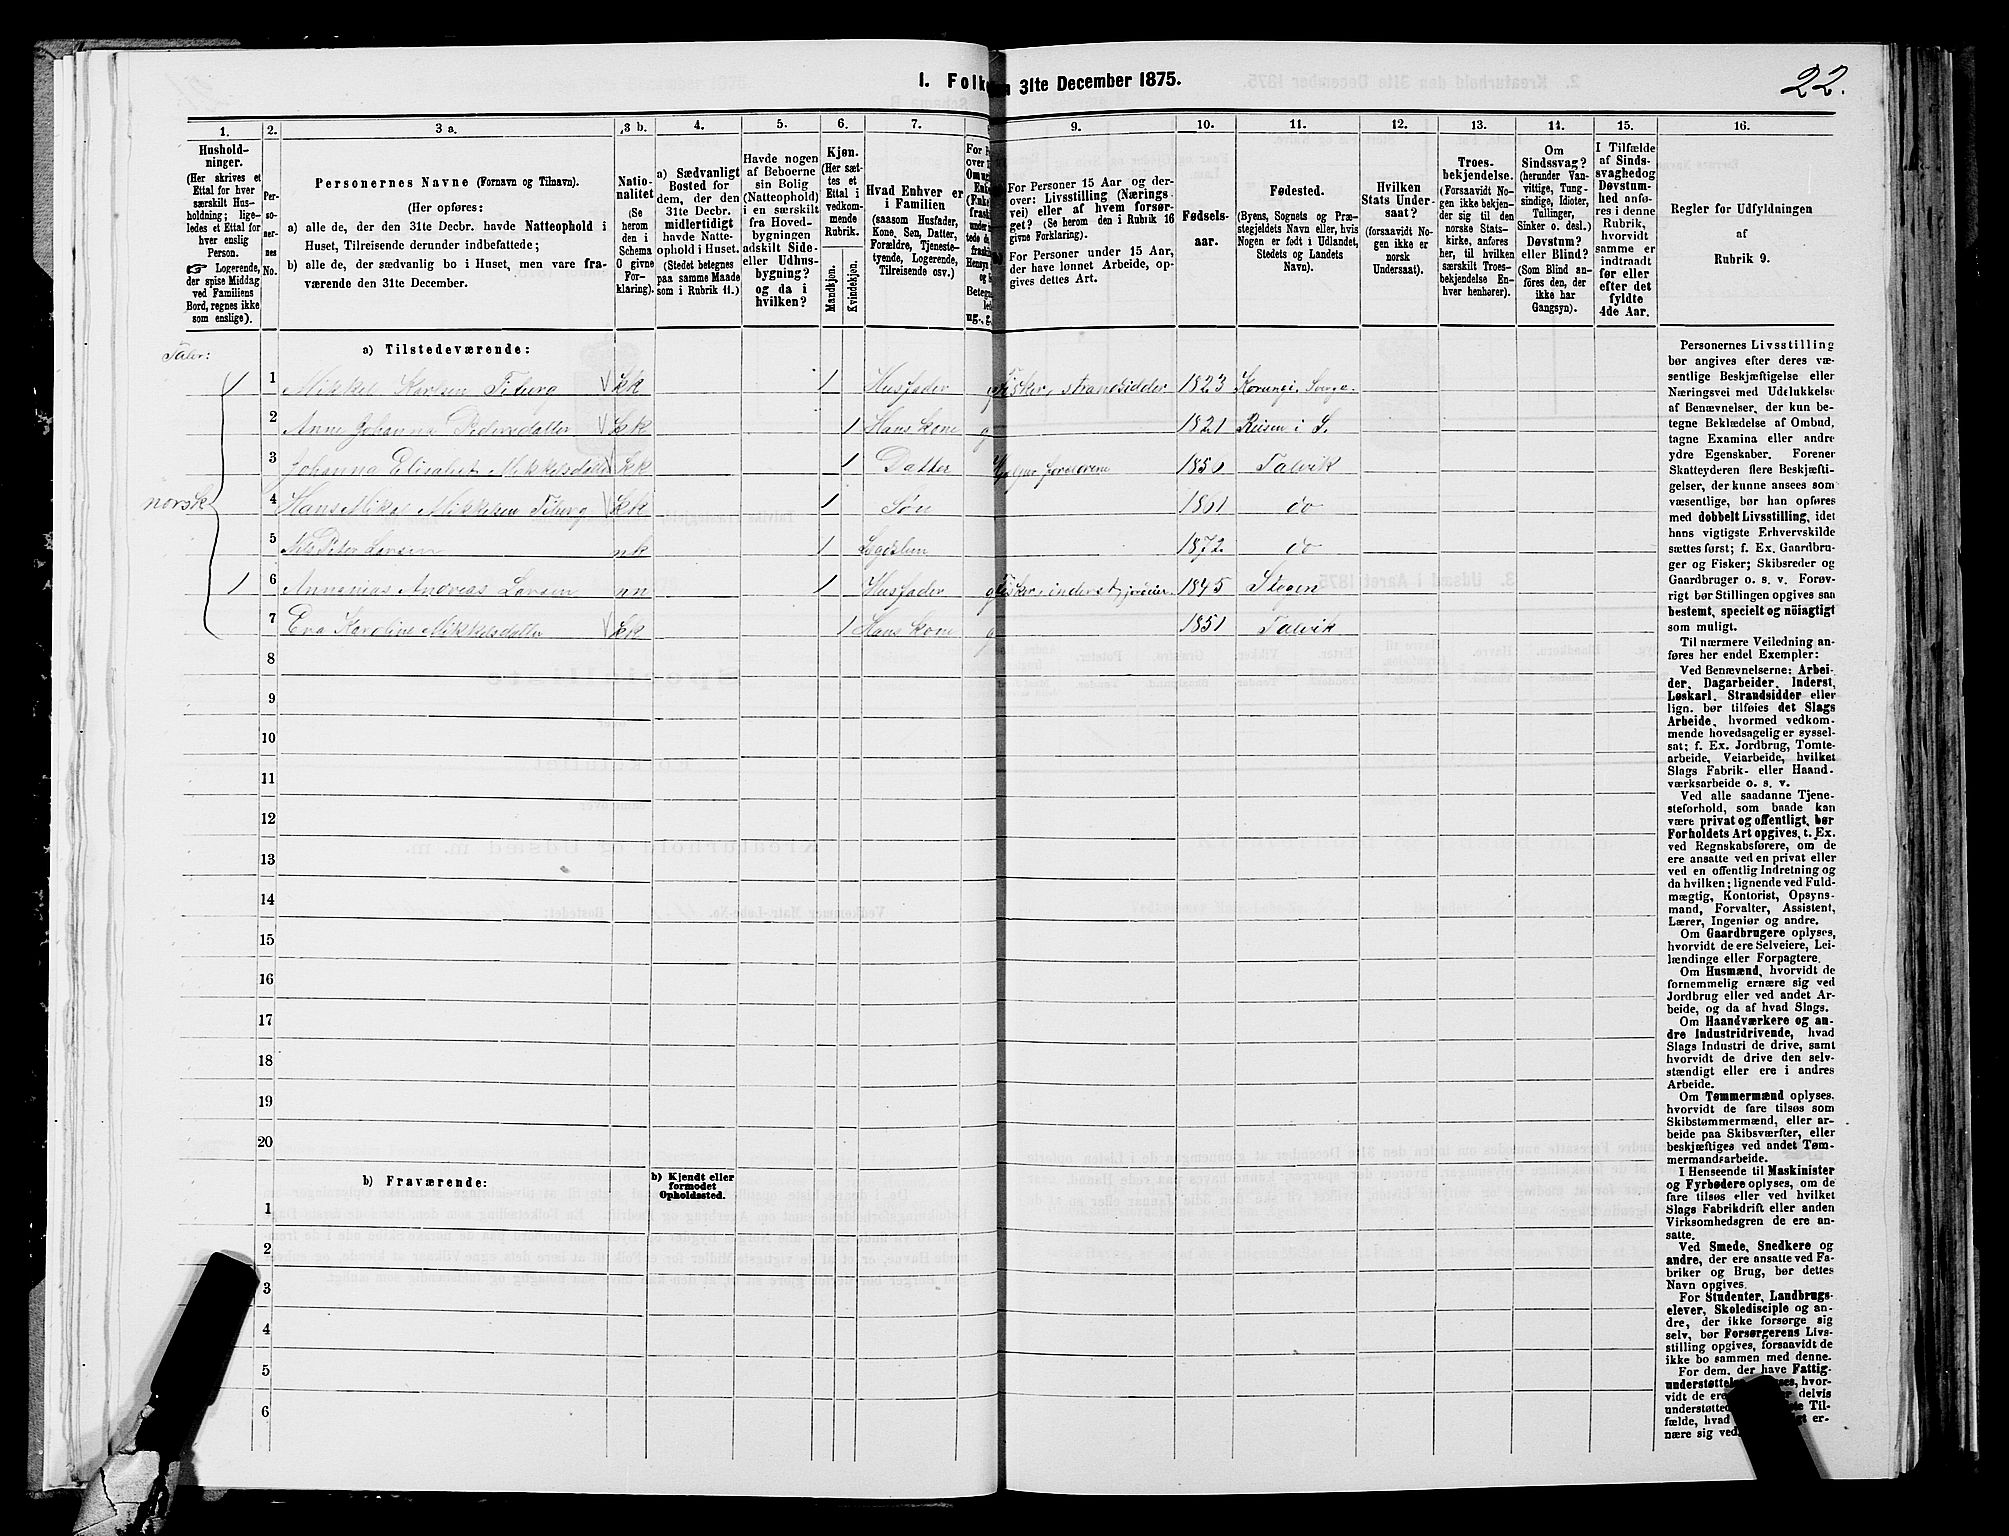 22.
I. Folk
n 31te December 1875.
1. 2. 3 a. 3 b. 4. 5. 6. 7. 9. 10. 11. 12. 13. 14. 15. 16.
Hushold-
ninger.
(Her skrives et
Ettal for hver
særskilt Hus-
holdning; lige-
ledes et Ettal for
hver enslig
Person.
☞ Logerende,
der spise Middag
ved Familiens
Bord, regnes ikke
som enslige).
Per-
so-
ner-
nes
No.
Personernes Navne (Fornavn og Tilnavn).
(Her opføres:
a) alle de, der den 31te Decbr. havde Natteophold i
Huset, Tilreisende derunder indbefattede;
b) alle de, der sædvanlig bo i Huset, men vare fra-
værende den 31te December.
Natio-
nalitet
(Se
herom
den i
Schema
O givne
For-
klaring).
a) Sædvanligt
Bosted for
dem, der den
31te Decbr.
midlertidigt
havde Natte-
ophold i Huset.
(Stedet betegnes
paa samme Maade
som i Rubrik 11.)
Havde nogen
af Beboerne
sin Bolig
(Natteophold)
i en særskilt
fra Hoved-
bygningen
adskilt Side-
eller Udhus-
bygning?
og da i
hvilken?
Kjøn.
(Her sæt-
tes et
Ettal i
vedkom-
mende
Rubrik.
Mandkjøn.
Kvindekjøn.
Hvad Enhver er
i Familien
(saasom Husfader,
Kone, Søn, Datter,
Forældre, Tjeneste-
tyende, Logerende,
Tilreisende osv.)
For Personer 15 Aar og der-
over: Livsstilling (Nærings-
vei) eller af hvem forsør-
get? (Se herom den i Rubrik 16
givne Forklaring).
For Personer under 15 Aar,
der have lønnet Arbeide, op-
gives dettes Art.
Fødsels-
aar.
Fødested.
(Byens, Sognets og Præ-
stegjeldets Navn eller, hvis
Nogen er født i Udlandet,
Stedets og Landets
Navn).
Hvilken
Stats Under-
saat?
(forsaavidt No-
gen ikke er
norsk
Undersaat).
Troes-
bekjendelse.
(Forsaavidt No-
gen ikke bekjen-
der sig til den
norske Stats-
kirke, anføres
her, til hvilken
særskilt Troes-
bekjendelse En-
hver henhører).
Om
Sindssvag?
(herunder Van-
vittige, Tung-
sindige, Idioter,
Tullinger,
Sinker o. desl.)
Døvstum?
eller Blind?
(Som Blind an-
føres den, der
ikke har
Gangsyn).
I Tilfælde
af Sinds-
svaghed og
Døvstum-
hed anfø-
res i denne
Rubrik,
hvorvidt
samme er
indtraadt
før eller
efter det
fyldte
4de Aar.
Regler for Udfyldningen
af
Rubrik 9.
a) Tilstedeværende:
Taler:
norsk
1 1 Mikkel Karlsen Fiberg kk 1 Husfader g Fisker, strandsidder 1823
2 Anne Johanna Pedersdatter kk 1 Hans kone g 1821 Reisen i S.
3 Johanna Elisabet Mikkelsdatter kk 1 Datter 1850 Talvik
4 Hans Mikal Mikkelsen Fiberg kk 1 Søn 1861 do
5 Nils Peter Larsen nk 1 Lægdslem 1872 do
1 6 Annanias Andreas Larsen nn 1 Husfader g Fisker, inderst 1845
7 Eva Karoline Mikkelsdatter kk 1 Hans kone g 1851 Talvik
8
9
10
11
12
13
14
15
16
17
18
19
20
b) Fraværende:
b) Kjendt eller
formodet
Opholdssted.
1
2
3
4
5
6
Personernes Livsstilling
bør angives efter deres væ-
sentlige Beskjæftigelse eller
Næringsvei med Udelukkelse
af Benævnelser, der kun be-
tegne Beklædelse af Ombud,
tagne Examina eller andre
ydre Egenskaber. Forener
Skatteyderen flere Beskjæfti-
gelser, der kunne ansees som
væsentlige, bør han opføres
med dobbelt Livsstilling, idet
hans vigtigste Erhvervskilde
sættes først; f. Ex. Gaardbru-
ger og Fisker; Skibsreder og
Gaardbruger o. s. v. Forøv-
rigt bør Stillingen opgives saa
bestemt, specielt og nöiagtigt
som muligt.
Til nærmere Veiledning an-
føres her endel Exempler:
Ved Benævnelserne: Arbei-
der, Dagarbeider, Inderst,
Løskarl, Strandsidder eller
lign. bør tilføies det Slags
Arbeide, hvormed vedkom-
mende hovedsagelig er syssel-
sat; f. Ex. Jordbrug, Tomte-
arbeide, Veiarbeide, hvilket
Slags Fabrik- eller Haand-
værksarbeide o. s. v.
Ved alle saadanne Tjene-
steforhold, som baade kan
være privat og offentligt, bør
Forholdets Art opgives, t. Ex.
ved Regnskabsførere, om de
ere ansatte ved en privat eller
ved en offentlig Indretning og
da hvilken; lignende ved Fuld-
mægtig, Kontorist, Opsyns-
mand, Forvalter, Assistent,
Lærer, Ingeniør og andre.
Om Gaardbrugere oplyses,
hvorvidt de ere Selveiere, Lei-
lændinge eller Forpagtere.
Om Husmænd, hvorvidt de
fornemmelig ernære sig ved
Jordbrug eller ved andet Ar-
beide, og da af hvad Slags.
Om Haandværkere og an-
dre Industridrivende, hvad
Slags Industri de drive, samt
hvorvidt de drive den selv-
stændigt eller ere i andres
Arbeide.
Om Tømmermænd oplyses,
hvorvidt de fare tilsøs som
Skibstømmermænd, eller ar-
beide paa Skibsværfter, eller
beskjæftiges ved andet Tøm-
mermandsarbeide.
I Henseende til Maskinister
og Fyrbødere oplyses, om de
fare tilsøs eller ved hvilket
Slags Fabrikdrift eller anden
Virksomhedsgren de ere an-
satte.
Ved Smede, Snedkere og
andre, der ere ansatte ved Fa-
briker og Brug, bør dettes
Navn opgives.
For Studenter, Landbrugs-
elever, Skoledisciple og an-
dre, der ikke forsørge sig
selv, bør Forsørgerens Livs-
stilling opgives, forsaavidt de
ikke bo sammen med denne.
For dem, der have Fattig-